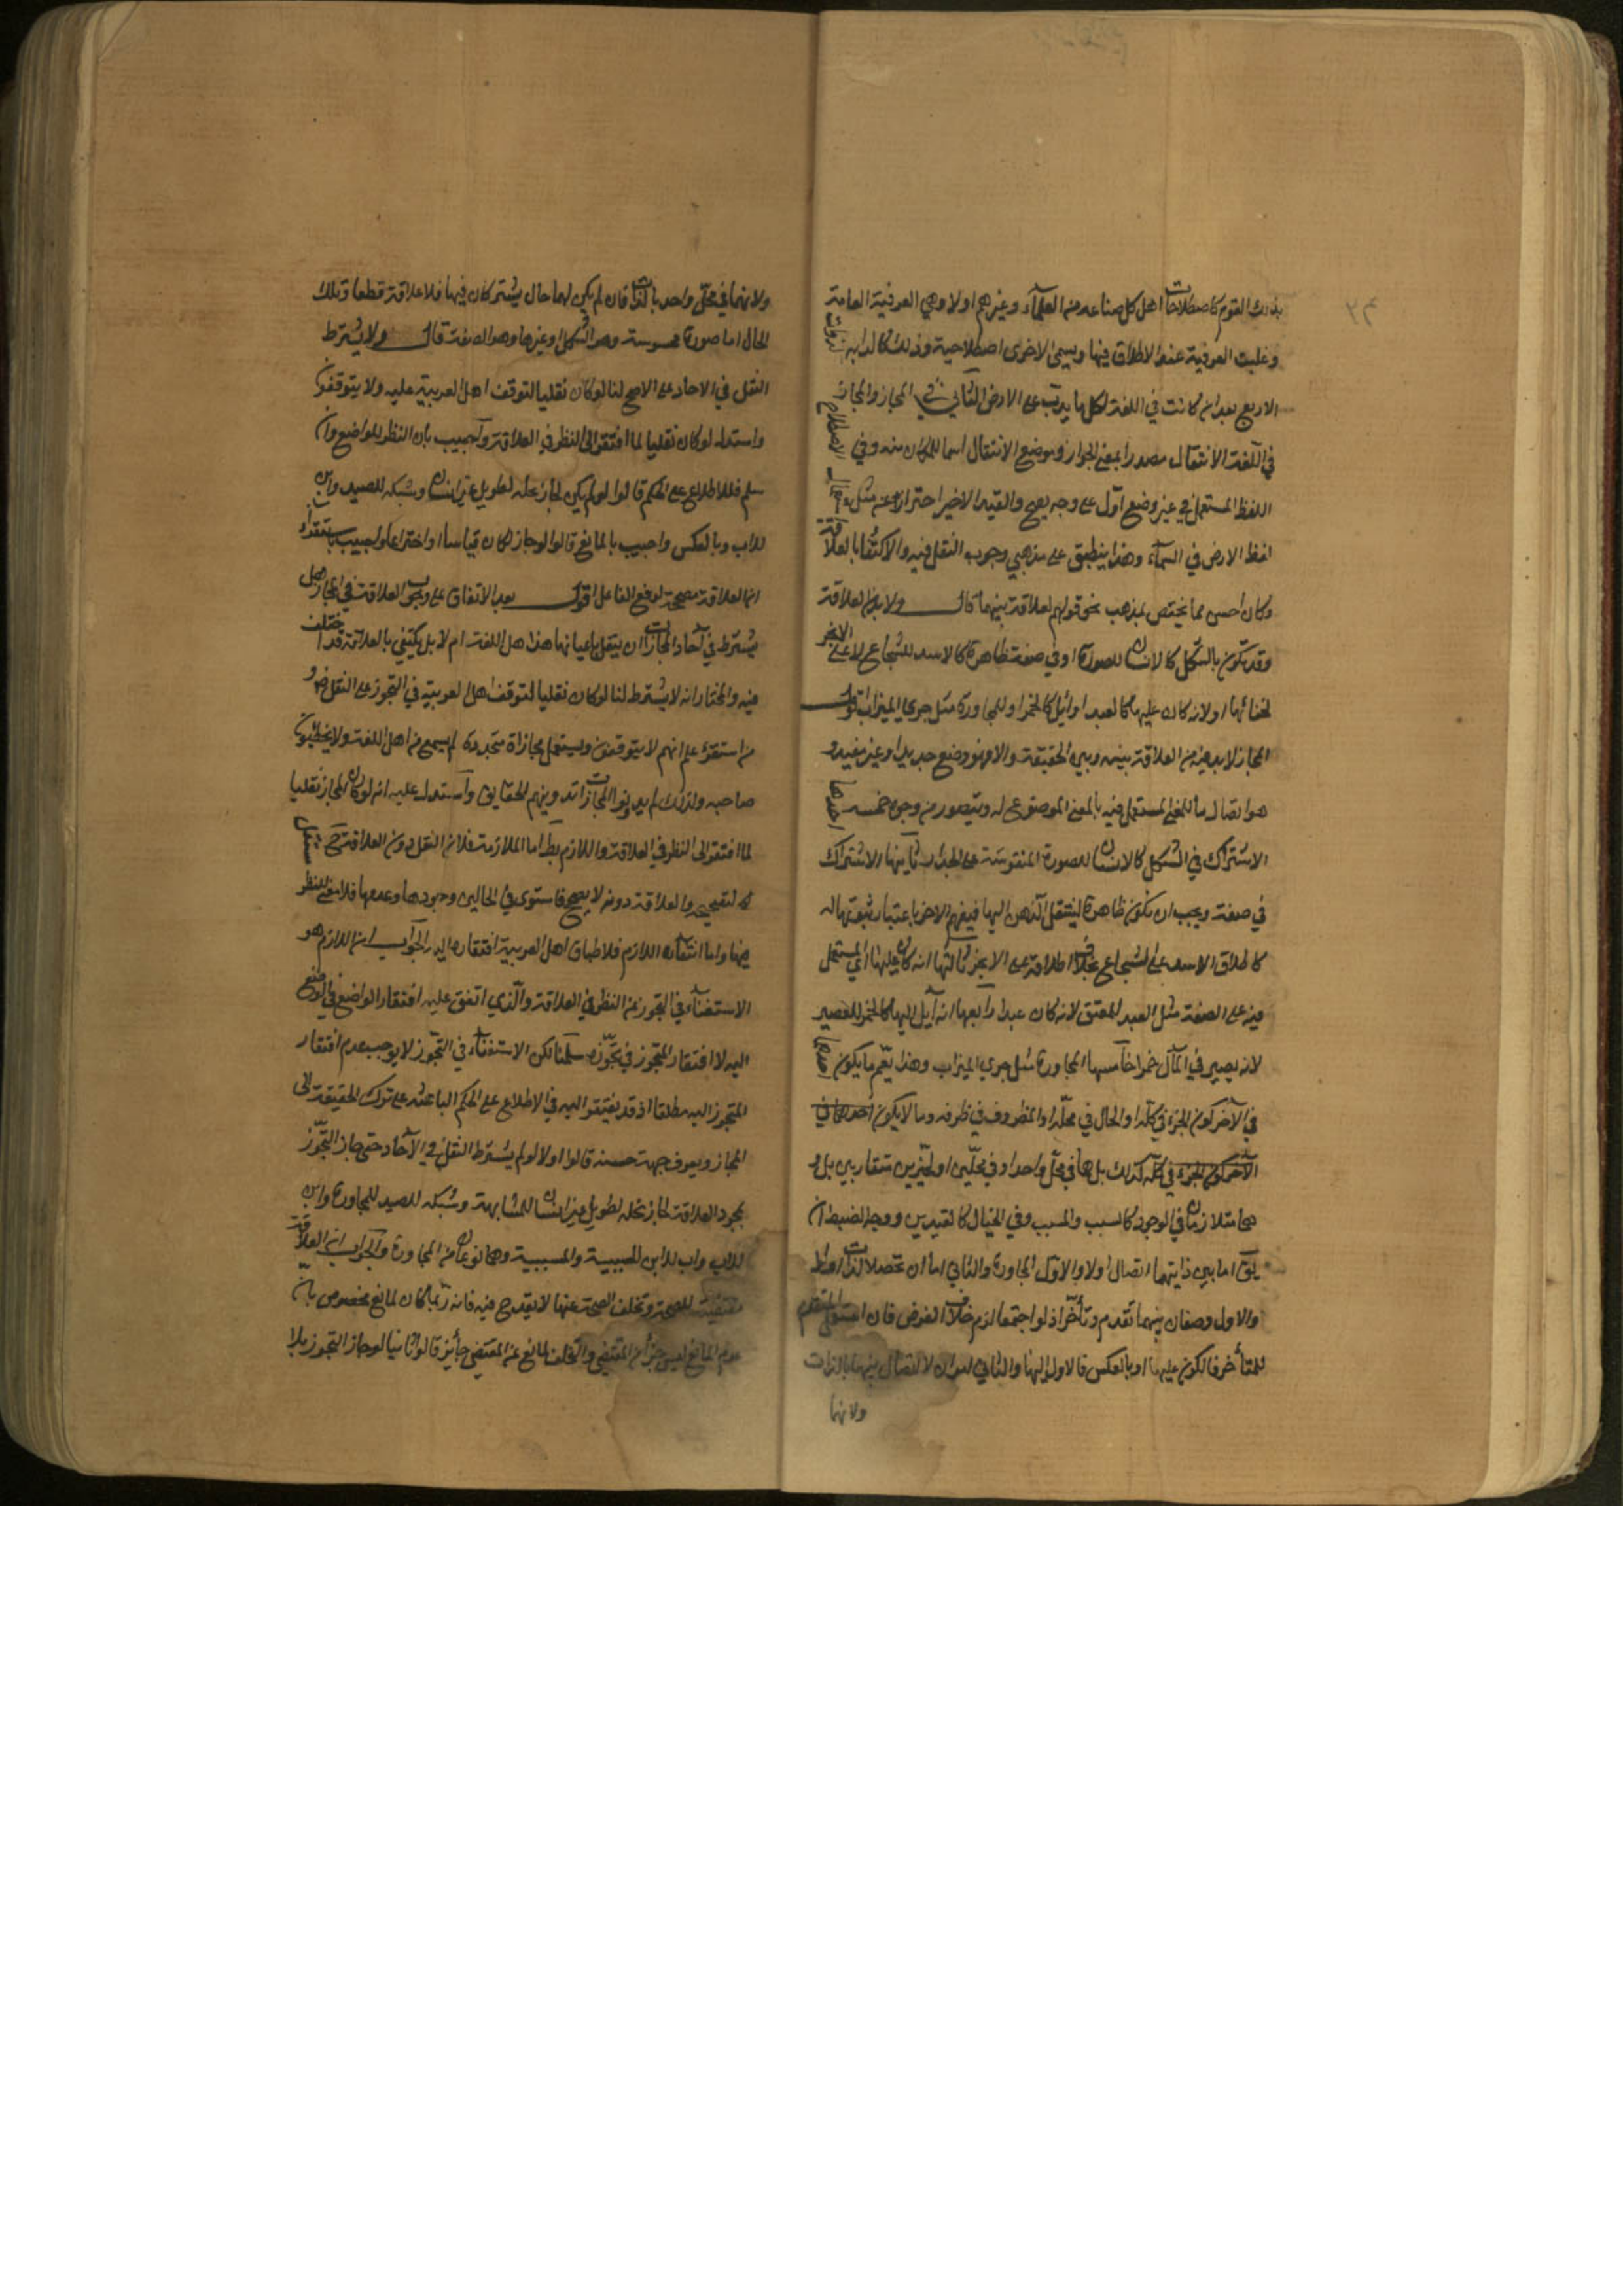 بذلك القوم كاصطلاحات اهل كل صناعة من العلماء وغيرهم اولا وهي العرفية العامة
وغلبت العرفية عند الاطلاق فيها ويسمى الاخرى اصطلاحية وذلك كالدابه لذوات
الاربع بعد ان كانت في اللغة لكل ما يدب على الارض الثاني في المجاز والمجاز
في اللغة الانتقال مصدرا بمعنى الجواز وموضع الانتقال اسما للمكان منه وفي الاصطلاح
اللفظ المستعمل في غير وضع اول على وجه يصح والقيد الاخير احتراز عن مثل استعمال
لفظ الارض في السماء وهذا ينطبق على مذهبي وجوب النقل فيه والاكتفا بالعلاقة
وكان احسن مما يختص بمذهب نحو قولهم لعلاقة بينهما قال ولا بد من العلاقة
وقد تكون بالشكل كالانسان للصورة او في صفة ظاهرة كالاسد للشجاع لا على الابخر
لخفائها او لانه كان عليها كالعبد او ائيل كالخمر او للمجاورة مثل جرى الميزاب اقول
المجاز لا بد فيه من العلاقة بينه وبين الحقيقة والا فهو وضع جديد او غير مفيد و
هو اتصال ما للمعنى المستعمل فيه بالمعنى الموضوع له ويتصور من وجوه خمسه احدها
الاشتراك في الشكل كالانسان للصورة المنقوشة على الجدار ثانيها الاشتراك
في صفة ويجب ان تكون ظاهرة لينتقل الذهن اليها فيفهم الاخر باعتبار ثبوتها له
كاطلاق الاسد على الشجاع بخلاف اطلاقه على الابخر ثالثها انه كان عليها اي المستعمل
فيه على الصفة مثل العبد للمعتق لانه كان عبدا رابعها انه آيل اليها كالخمر للعصير
لانه يصير في المآل خمرا خامسها المجاورة مثل جري الميزاب وهذا يعم ما يكون احدهما
في الآخر كون الجزء في كله او الحال في محله او المظروف في ظرفه وما لا يكون احدهما في
الآخر كون الجزء في كله كذلك بل هما في محل واحد او في محلين او لحيزين متقاربين بل و
هما متلازمان في الوجود كالسبب والمسبب وفي الخيال كالقيدين ووجه الضبط ان
يقال اما بين ذاتيهما اتصال اولا والاول المجاورة والثاني اما ان تحصلا لذات اولا
والاول وصفان بينهما تقدم وتأخر اذ لو اجتمعا لزم خلاف الفرض فان استعمل المتقدم
للمتأخر فالكون عليها او بالعكس فالاول اليها والثاني ان لا اتصال بينهما بالذات
ولا نهما
ولا نهما في محل واحد بالذات فان لم يكن لهما حال يشتركان فيها فلا علاقة قطعا وتلك
الحال اما صورة محسوسة وهو الشكل او غيرها وهو الصفة قال ولا يشترط
النقل في الاحاد على الاصح لنا لو كان نقليا لتوقف اهل العربية عليه ولا يتوقفون
واستدل لو كان نقليا لما افتقر الى النظر في العلاقة وأجيب بان النظر للواضع وان
سلم فللاطلاع على الحكم قالوا لو لم يكن لجاز نخلة لطويل غير انسان وشبكة للصيد وابن
للاب وبالعكس واجيب بالمانع قالوا لو جاز لكان قياسا او اختراعا واجيب باستقراء
ان العلاقة مصححة لرفع الفاعل اقول بعد الاتفاق على وجوب العلاقة في المجاز هل
يشترط في آحاد المجازات ان ينقل باعيانها هذا هل اللغة ام لا بل يكتفى بالعلاقة قد اختلف
فيه والمختار انه لا يشترط لنا لو كان نقليا لتوقف اهل العربية في التجوز على النقل و
من استقرء علم انهم لا يتوقفون ويستعمل مجازاة متجددة لم يسمع من اهل اللغة ولا يخطئون
صاحبه ولذلك لم يدونوا المجازات تدوينهم الحقايق واستدل عليه انه لو كان المجاز نقليا
لما افتقر الى النظر في العلاقة واللازم بط اما الملازمة فلان النقل دون العلاقة ح مستقل
لتصحيحه والعلاقة دونه لا يصح فاستوى في الحالين وجودها وعدمها فلا معنى للنظر
فيها واما انتفاء اللازم فلاطباق اهل العربية افتقاره اليه الجواب ان اللازم هو
الاستغناء في التجوز عن النظر في العلاقة والذي اتفق عليه افتقار الواضع في الوضع
اليه لا افتقار المتجوز في تجوزه سلمنا لكن الاستغناء في التجوز لا يوجب عدم افتقار
المتجوز اليه مطلقا اذ قد يفتقر اليه في الاطلاع على الحكم الباعثه على ترك الحقيقة الى
المجاز ويعرف جهة حسنه قالوا اولا لو لم يشترط النقل في الآحاد حتى جاز التجوز
بمجرد العلاقة لجاز نخلة لطويل غير انسان للمشابهة وشبكه للصيد للمجاورة وابن
للاب واب للابن للسببية والمسببية وهما نوعان من المجاورة والجواب ان العلاقة
مقتضية للصحة وتخلف الصحة عنها لا يقدح فيه فانه ربما كان لمانع مخصوص بان
عدم المانع ليس جزأ من المقتضي والتخلف لمانع عن المقتضي جايز قالوا ثانيا لو جاز التجوز بلا